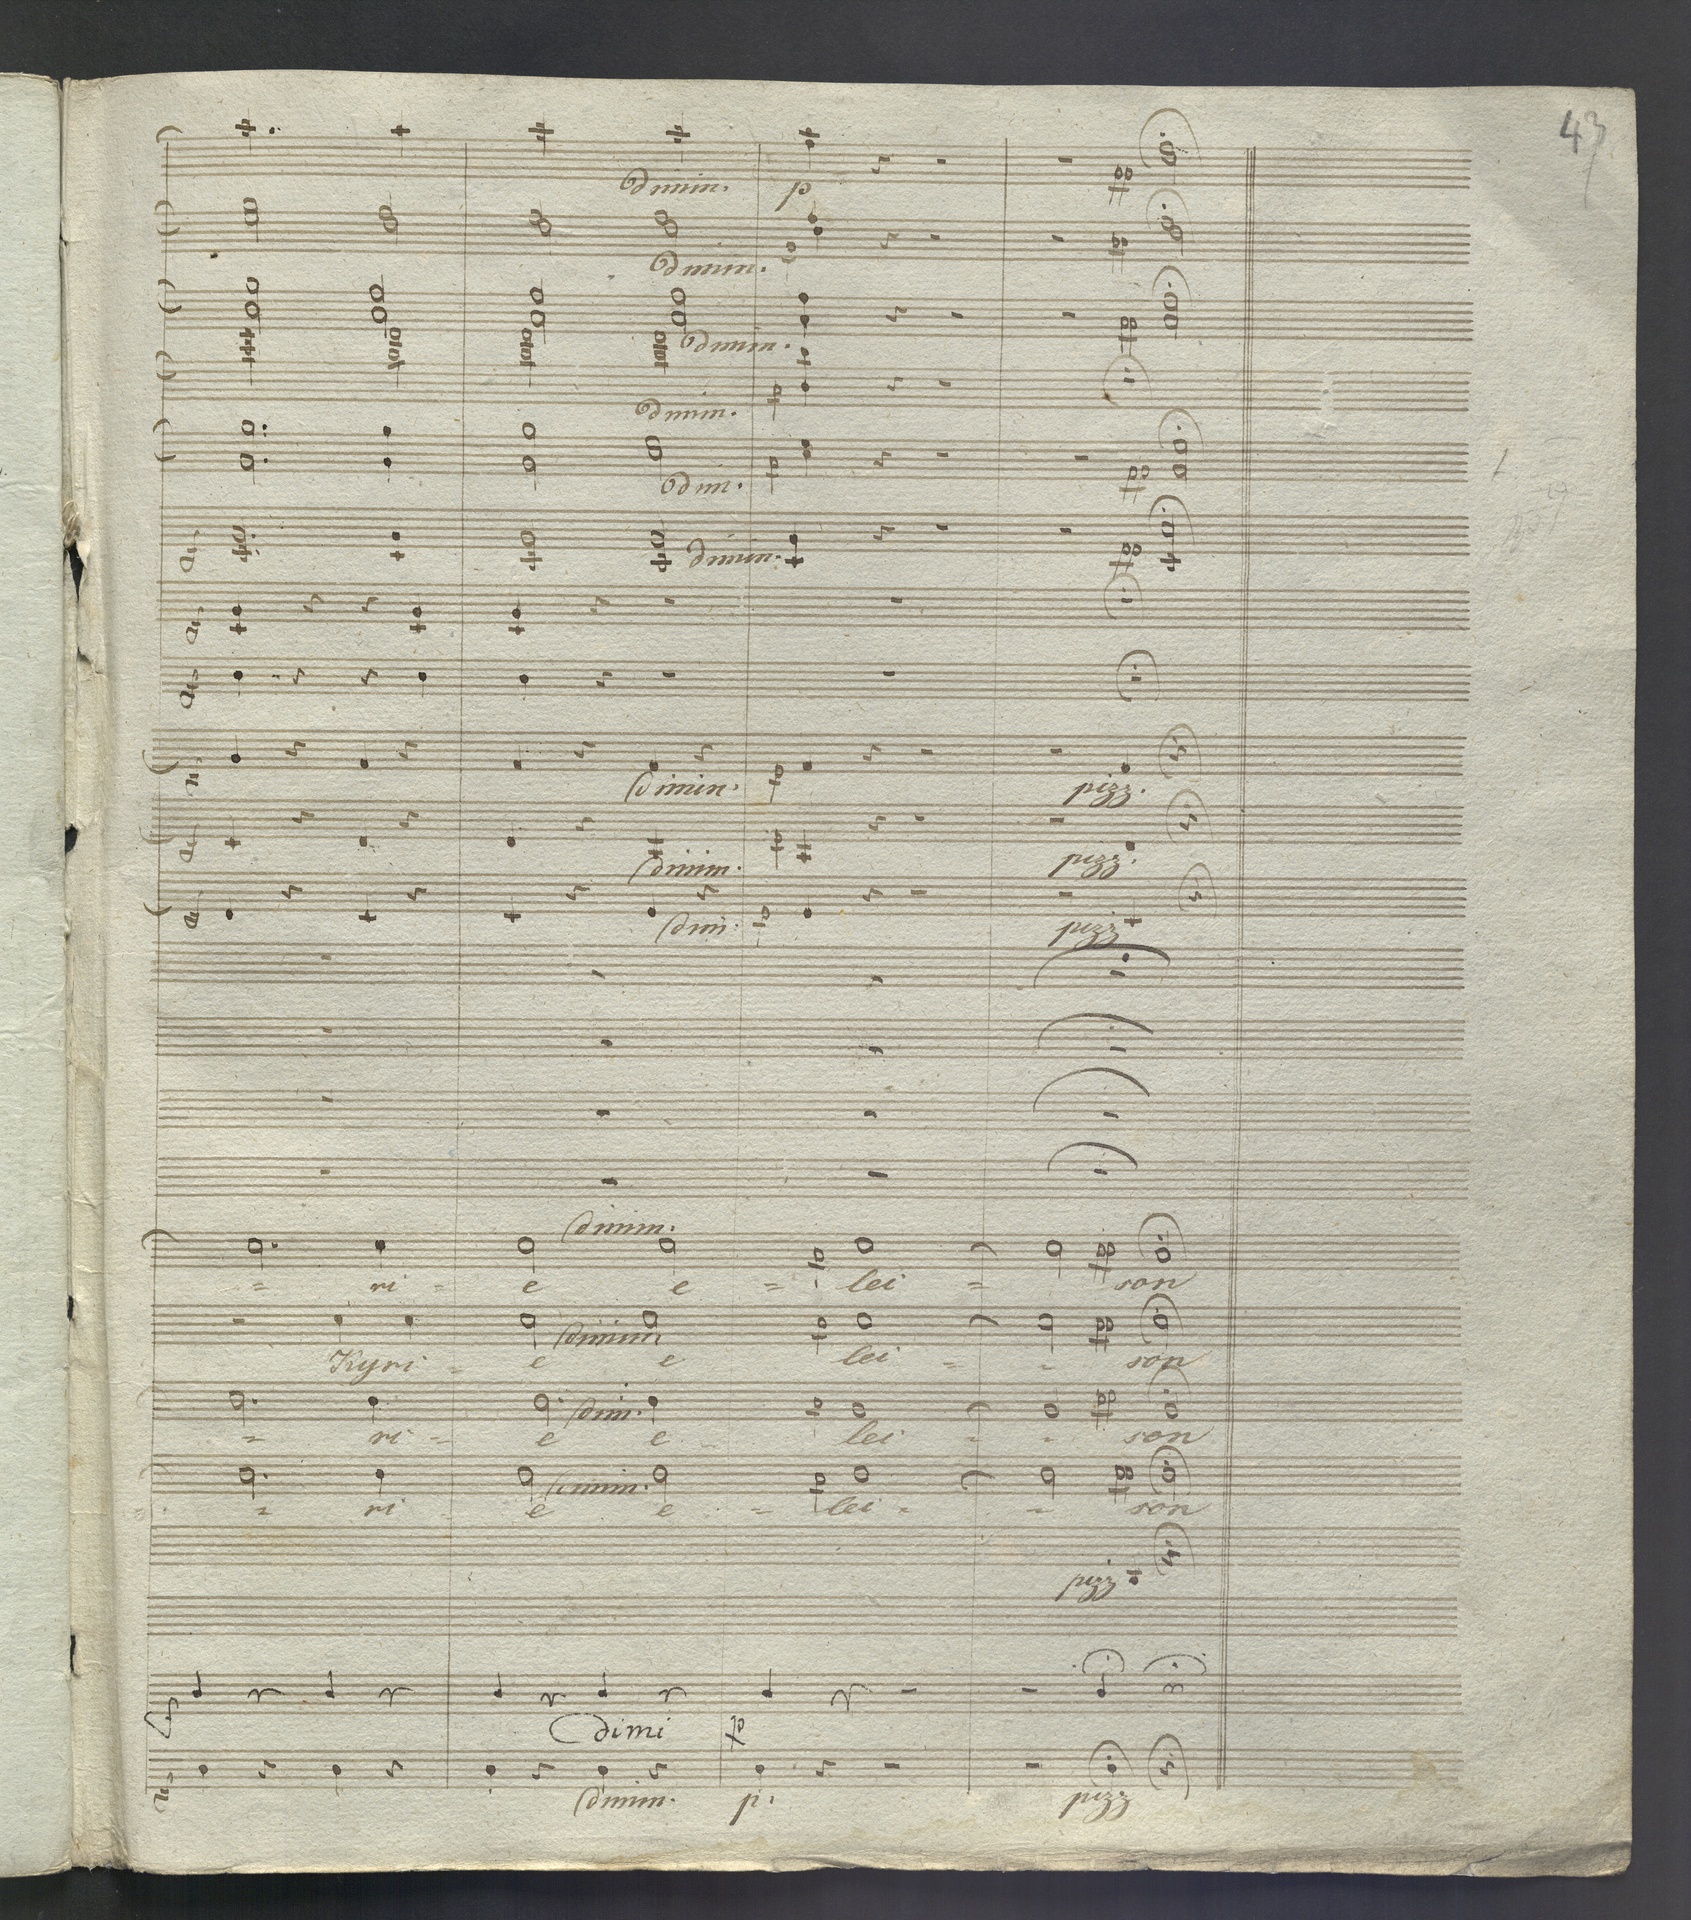 43
dimin. p
dimin. p
dimin. p
dimin. p
dim. p pp
dimin. pp
dimin. p pizz.
dimin. p pizz.
dim. p pizz
dimin.
= ri = e e = p lei = pp son
dimin.
Kyri = e e p lei = - pp son
dim.
= ri = e e - p lei - - pp son
dimin.
= ri - e e - = p lei = - pp son
pizz
dimi p
dimin. p. pizz